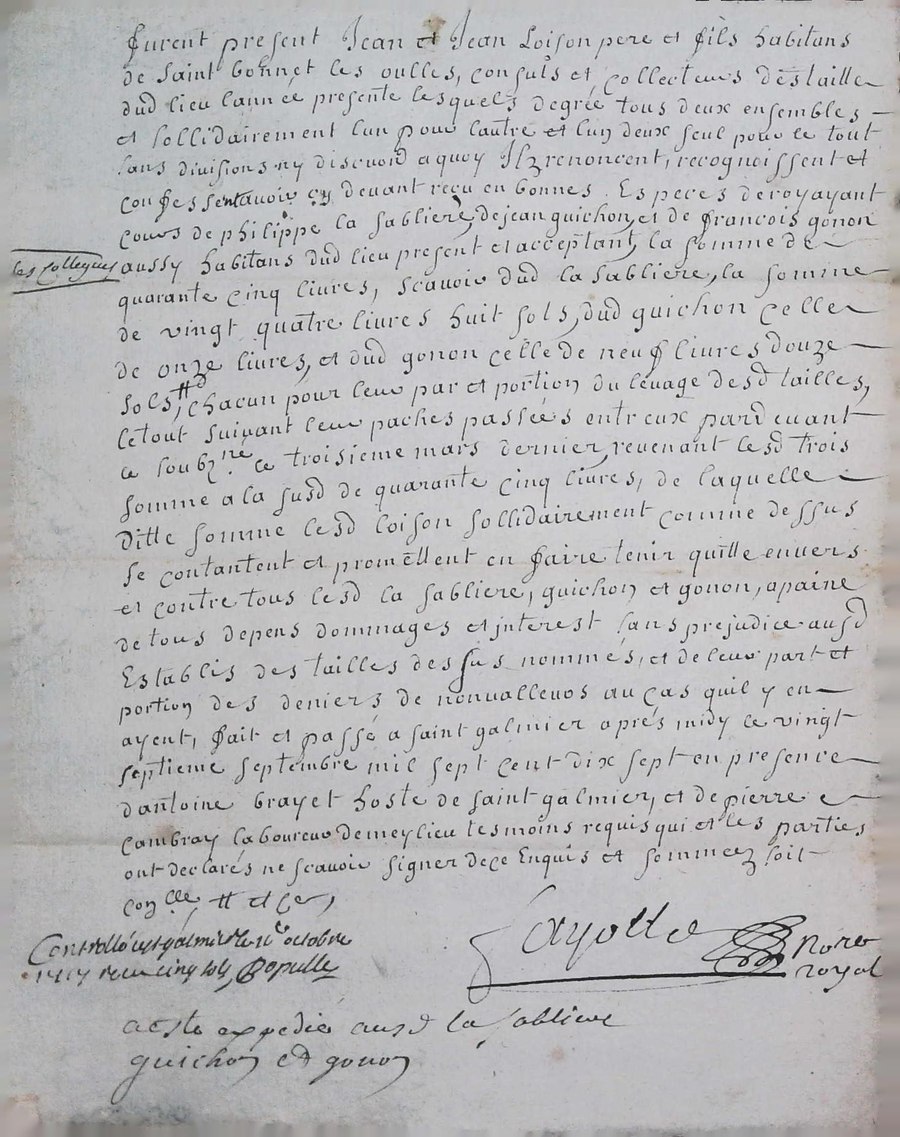 furent present Jean et Jean Loison pere et fils habitans
de Saint bonnet les oulles, consuls et collecteurs des taille
dud lieu lannee presente lesquels degré tous deux ensembles
et sollidairement lun pour lautre et lun deux seul pour le tout
sans divisions ny discuond a quoy Ilz renoncent, recognoissent et
confessent avoir cy devant reçu en bonnes Especes deroy ayant
cours de philippe la sabliere, de jean guichon, et de francois gonon
les collegues
aussy habitans dud lieu present et acceptant, la somme de
quarante cinq livres, scavoir dud la sabliere, la somme
de vingt quatre livres huit sols, dud guichon celle
de onze livres, et dud gonon celle de neuf livres douze
sols, chacun pour leur par et portion du levage desd tailles,
le tout suivant leur paches passées entreux pardevant
ce soubz.né ce troisieme mars dernier, revenant lesd trois
somme a la susd de quarante cinq livres, de laquelle
ditte somme lesd loison sollidairement comme dessus
se contantent et promettent en faire tenir quitte envers
et contre tous lesd la sabliere, guichon et gonon, apaine
de tous depens dommages et interest sans prejudice ausd
Establis des tailles dessus nommés, et de leur part et
portion des deniers de nonvalleuos au cas quil y en
ayent, fait et passé a saint galmier aprés midy le vingt
septieme septembre mil sept cent dix sept en presence
dantoine brayet hoste de saint galmier, et de pierre
cambray laboureur de meylieu tesmoins requis qui et les parties
ont declarés ne scavoir signer de ce Enquis et sommeez soit
con.lle # et ce,
Controllé a st galmier le 11e octobre
1717 recu cinq sols, Bopulle
fayolle Nore
royal
acste expedié ausd la sabliere
guichon et gonon